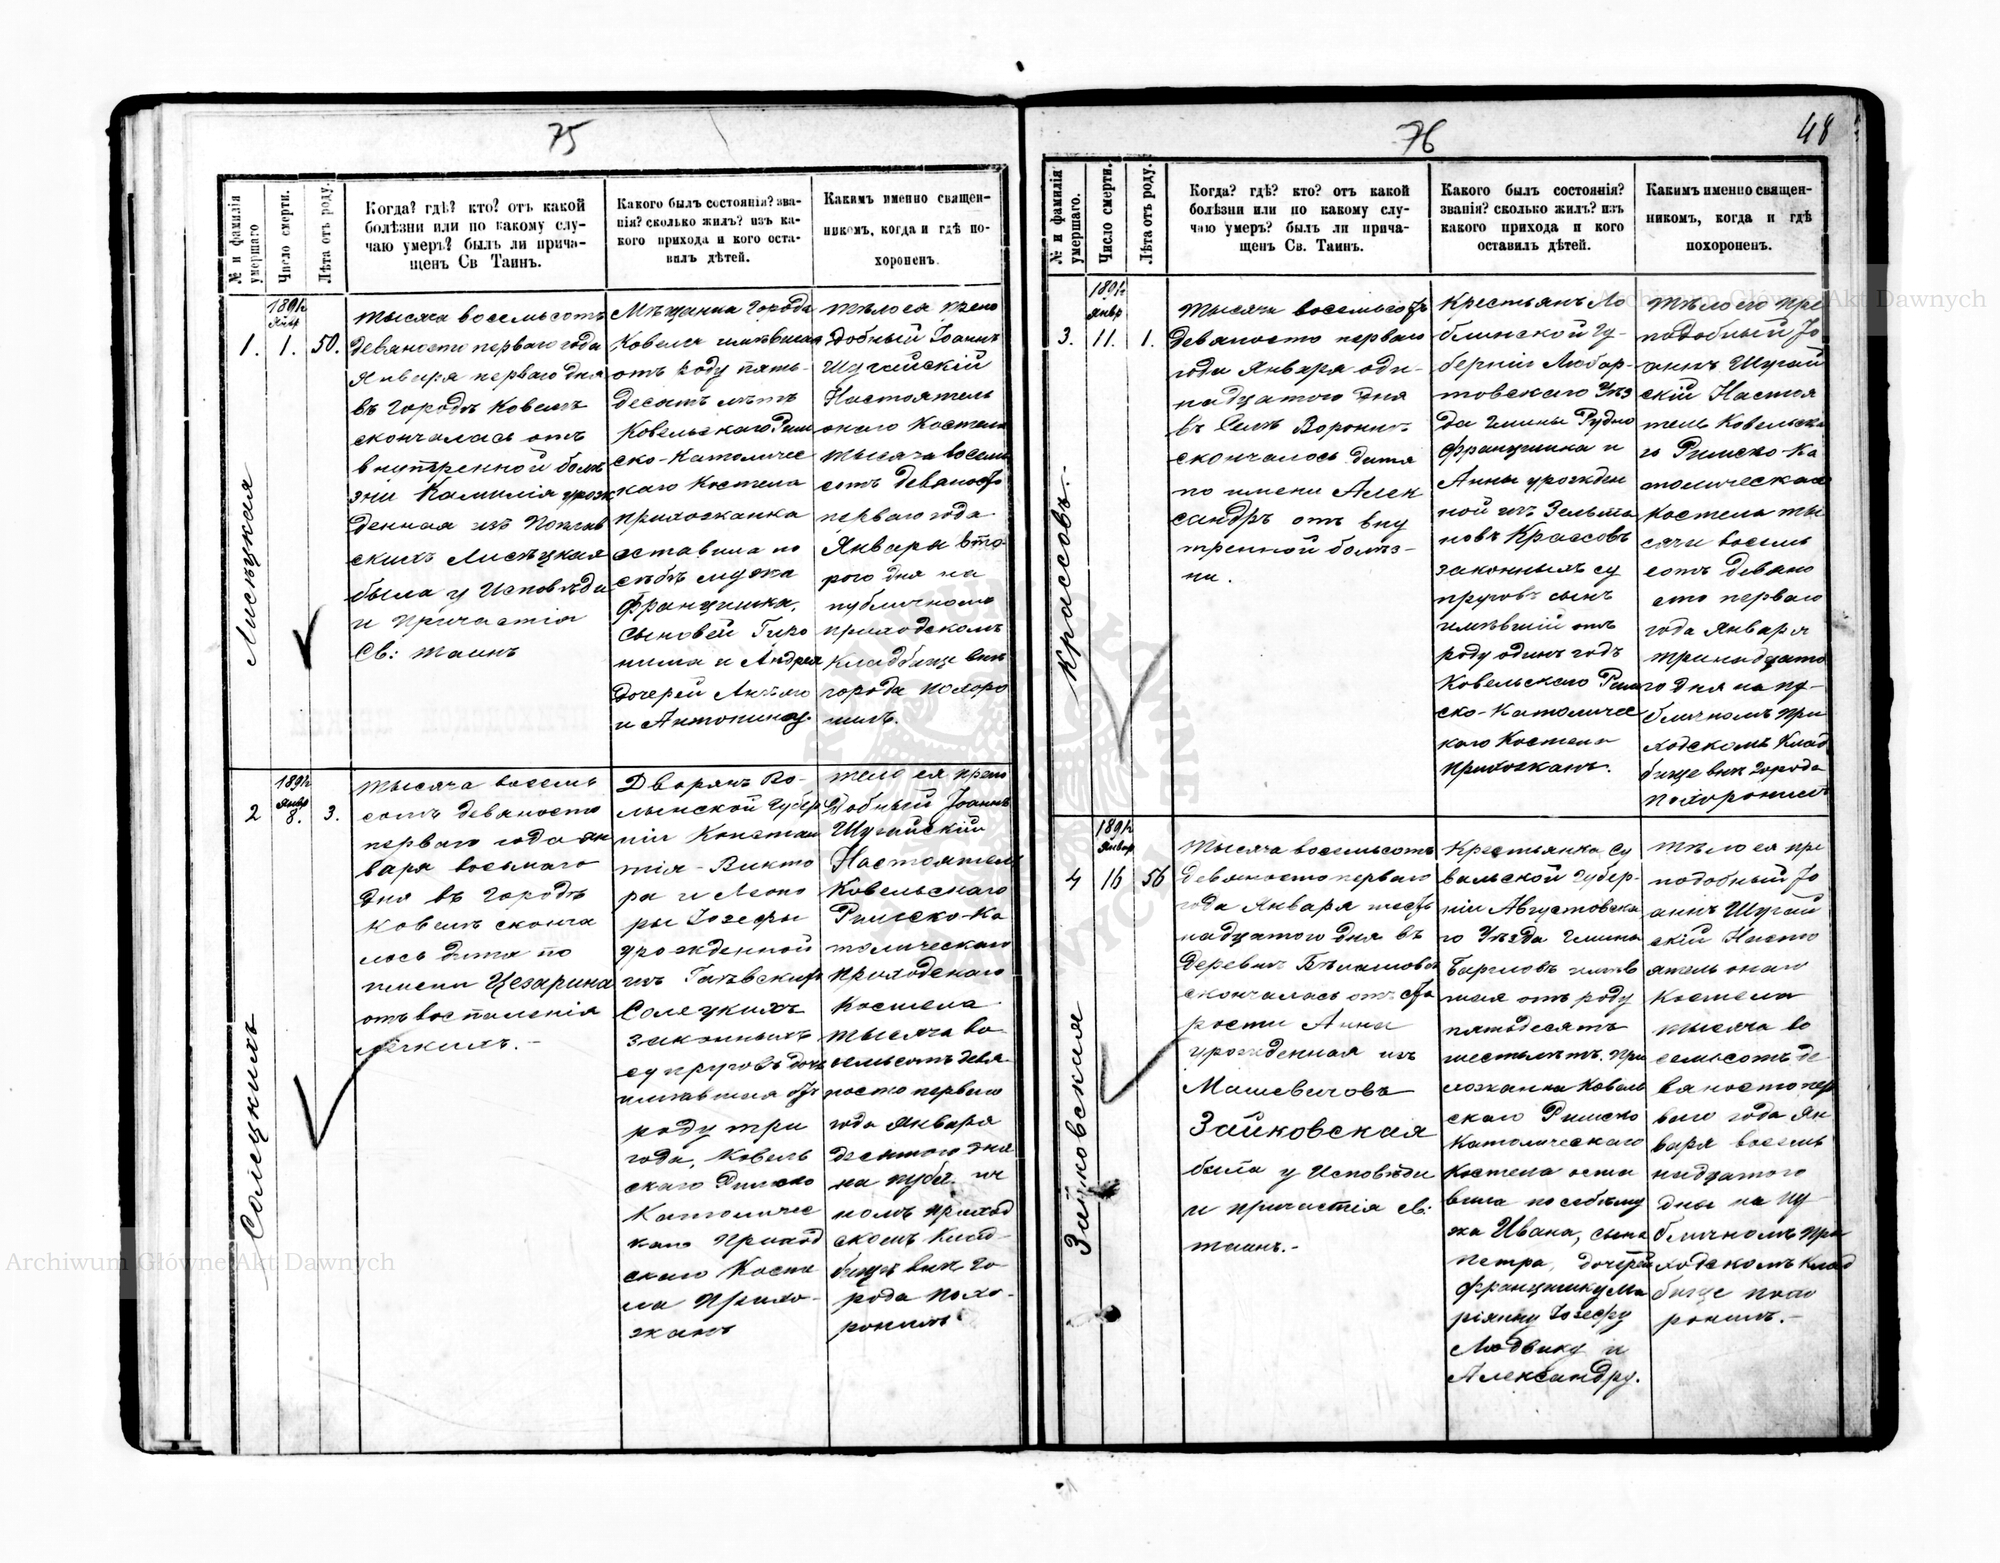 75
№ и фамилія умершаго
Число смерти.
Лѣта отъ роду.
Когда? гдѣ? кто? отъ какой
болѣзни или по какому слу-
чаю умеръ? былъ ли прича-
щенъ Св Таинъ.
Какого былъ состоянія? зва-
нія? сколько жилъ? изъ ка-
кого прихода и кого оста-
вилъ дѣтей.
Какимъ именно священ-
никомъ, когда и гдѣ по-
хороненъ.
1.
Лисѣцкая
1891 г.
Янвр
1.
50.
Тысяча восемьсотъ
девяносто перваго года
Января перваго дня
въ городѣ Ковелѣ
скончалась отъ
внутренной болѣ
зни Камилія урож
денная изъ
скихъ Лисѣцкая
была у Исповѣди
и Причастія
Св: Таинъ
Мѣщанка города
Ковеля имѣвшая
отъ роду пять-
десятъ лѣтъ
Ковельскаго Рим
ско-Католичес
каго Костела
прихожанка
оставила по
себѣ мужа
Францишка,
сыновей Гиро
нима и Андрея
дочерей Анѣлю
и Антонину.
Тѣло ея препо
добный Іоаннъ
Шугайскій
Настоятель
онаго Костела
тысяча восемь
сотъ девяносто
перваго года
Января вто-
рого дня на
публичномъ
приходскомъ
кладбище внѣ
города похоро
нилъ.
2
Солецкихъ
1891 г.
Янвр
8.
3.
Тысяча восемь
сотъ девяносто
перваго года ян
варя восьмаго
дня въ городѣ
Ковелѣ сконча
лось дитя по
имени Цезарина
отъ воспаленія
легкихъ.-
Дворянъ Во-
лынской Губер
ніи Констан
тія-Викто
ра и Леоно
ры Іозефы
урожденной
изъ
Солецкихъ
законныхъ
супруговъ дочь
имѣвшая отъ
роду три
года, Ковель
скаго Римско
Католичес
каго Приход
скаго Косте
ла Прихо-
жанъ
Тело ея препо
добный Іоаннъ
Шугайскій
Настоятель
Ковельскаго
Римско-Ка
толическаго
Приходскаго
Костела
тысяча во
семьсотъ девя-
носто перваго
года Января
десятого дня
на публ. ич
номъ приход
скомъ Клад-
бищѣ внѣ го-
рода похо-
ронилъ
76
48
№ и фамилія умершаго.
Число смерти.
Лѣта отъ роду.
Когда? гдѣ? кто? отъ какой
болѣзни или по какому слу-
чаю умеръ? былъ ли прича-
щенъ Св. Таинъ.
Какого былъ состоянія?
званія? сколько жилъ? изъ
какого прихода и кого
оставилъ дѣтей.
Какимъ именно священ-
никомъ, когда и гдѣ
похороненъ.
3.
Крассовъ.-
1891 г.
Январ
11.
1.
Тысяча восемьсотъ
девяносто перваго
года Января оди-
надцатого дня
въ Селѣ Воронѣ
скончалось дитя
по имени Алек
сандръ отъ вну
тренной болѣз-
ни.
Крестьянъ Лю
блинской Гу-
берніи Любар-
товскаго Уѣз
да Гмины Рудно
Францишка и
Анны урожден
ной изъ
новъ Крассовъ
законныхъ су
пруговъ сынъ
имѣвшій отъ
роду одинъ годъ
Ковельскаго Рим
ско-Католичес
каго Костела
Прихожанъ.
Тѣло его пре
подобный Іо
аннъ Шугай
скій Настоя
тель Ковельска
го Римско-Ка
толическаго
Костела ты
сяча восемь
сотъ девяно
сто перваго
года Января
тринадцато
го дня на пу-
бличномъ при
ходскомъ Клад
бище внѣ города
похоронилъ
4
Зайковская
1891 г.
Январ
16
56
Тысяча восемьсотъ
девяносто перваго
года Января шест
надцатого дня въ
деревнѣ
скончалась отъ ста
рости Анна
урожденная изъ
Мацкевичовъ
Зайковская
была у Исповѣди
и причастія св:
таинъ.-
Крестьянка Су
валкской Губер-
ніи Августовска
го Уѣзда Гмины
имѣв
шая отъ роду
пятьдесятъ
шесть лѣтъ. При
хожанка Ковель
скаго Римско
Католическаго
Костела оста
вила по себѣ му
жа Ивана, сына
Петра, дочерей
Францишку Ма
ріянну Іозефу
Людвику и
Александру.
Тѣло ея пре
подобный Іо
аннъ Шугай
скій Насто
ятель онаго
Костела
тысяча во
семьсотъ де
вяносто пер
ваго года Ян
варя восемь
надцатого
дня на пу
бличномъ при
ходскомъ клад
бище похо
ронилъ.-
Archiwum Główne Akt Dawnych
Archiwum Główne Akt Dawnych